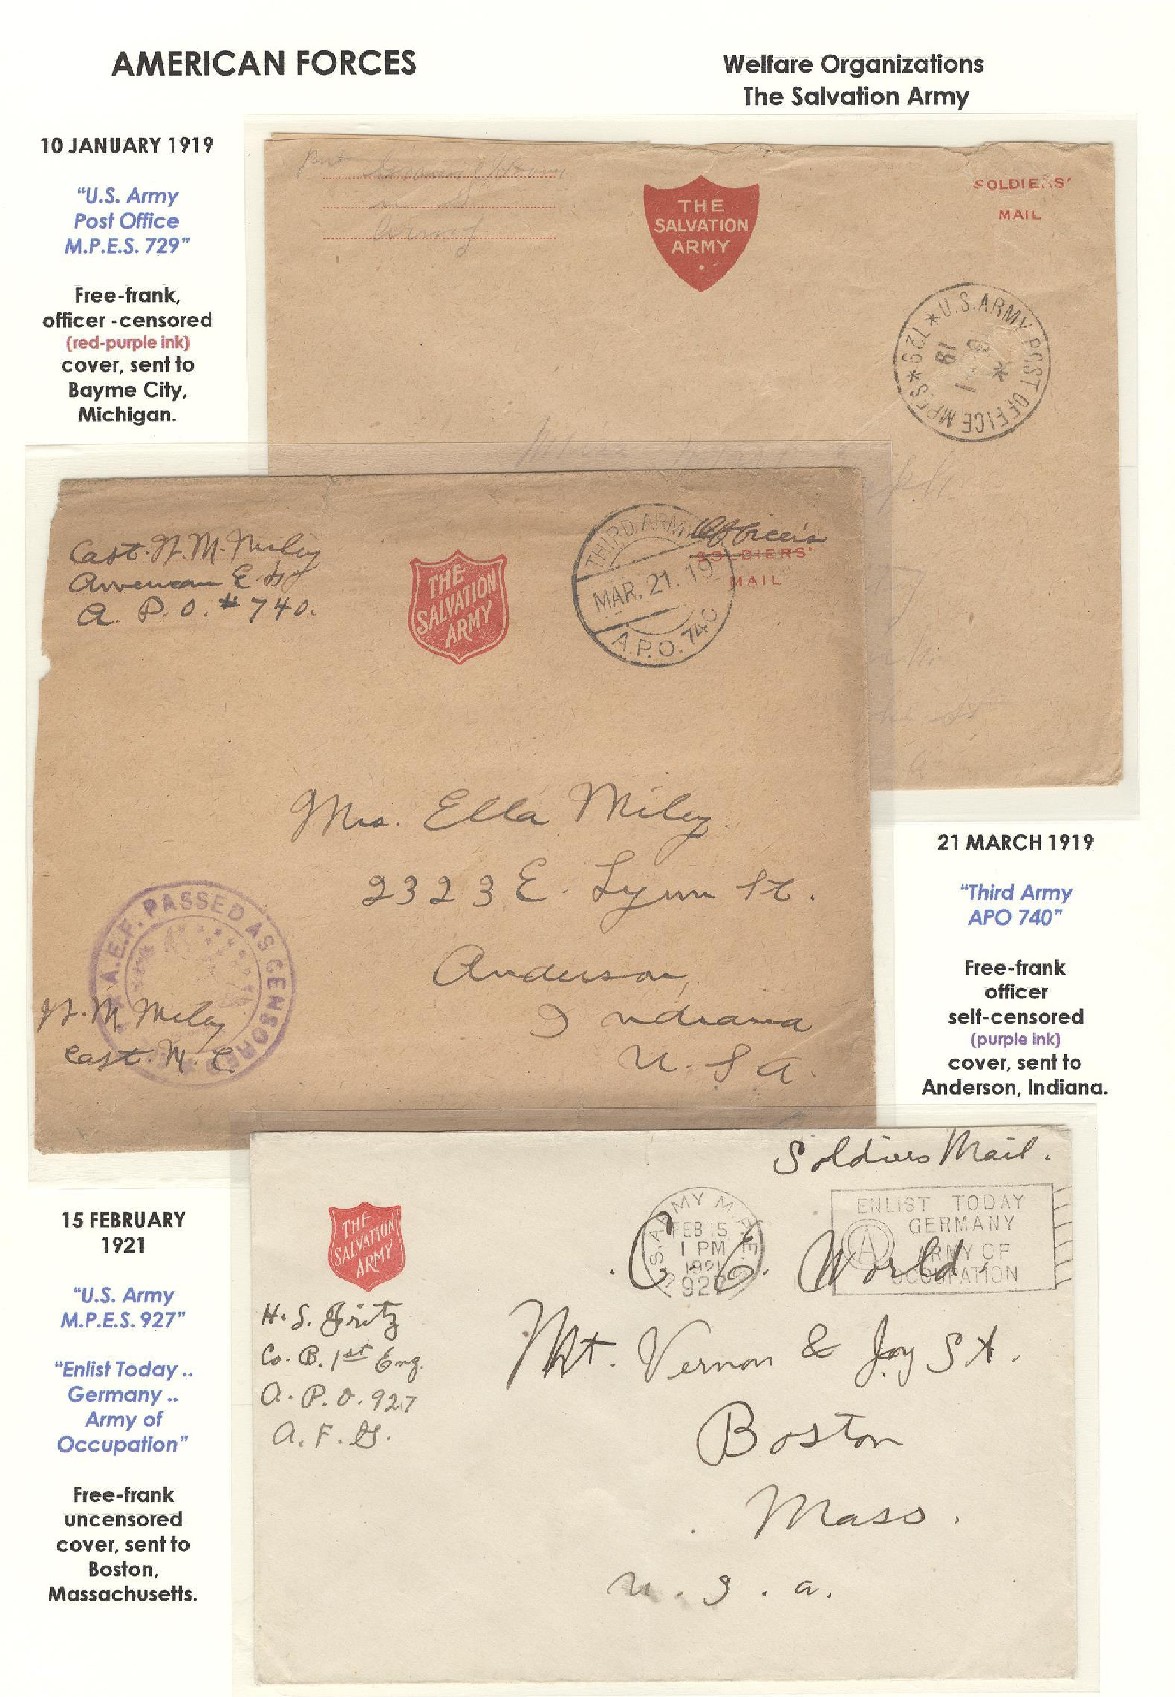 AMERICAN FORCES
Welfare Organizations
The Salvation Army
10 JANUARY 1919
"U.S. Army
Post Office
M.P.E.S. 729"
Free-frank,
officer -censored
(red-purple ink)
cover, sent to
Bayme City,
Michigan.
THE
SALVATION
ARMY
SOLDIERS'
MAIL
*U.S. ARMY POST OFFICE MPES* 729
19
Miss
Army
Capt. H. M. Miley
American E. F.
A. P. O. #740.
THE
SALVATION
ARMY
THIRD ARMY
MAR. 21. 19
A.P.O. 740
Officers
SOLDIERS'
MAIL
Mrs. Ella Miley
2323 E. Lynn St.
Anderson,
Indiana
U. S. A.
A.E.F. PASSED AS CENSORED
H. M. Miley
Capt. M. C.
21 MARCH 1919
"Third Army
APO 740"
Free-frank
officer
self-censored
(purple ink)
cover, sent to
Anderson, Indiana.
15 FEBRUARY
1921
"U.S. Army
M.P.E.S. 927"
"Enlist Today ..
Germany ..
Army of
Occupation"
Free-frank
uncensored
cover, sent to
Boston,
Massachusetts.
Soldiers Mail.
THE
SALVATION
ARMY
H. S. Fritz
Co. B. 1st Eng.
A. P. O. 927
A. F. G.
U.S. ARMY M.P.E.S.
FEB 15
1 PM
1921
927
ENLIST TODAY
GERMANY
ARMY OF
OCCUPATION
C. E. World
Mt. Vernon & Joy St.
Boston
Mass.
U. S. A.